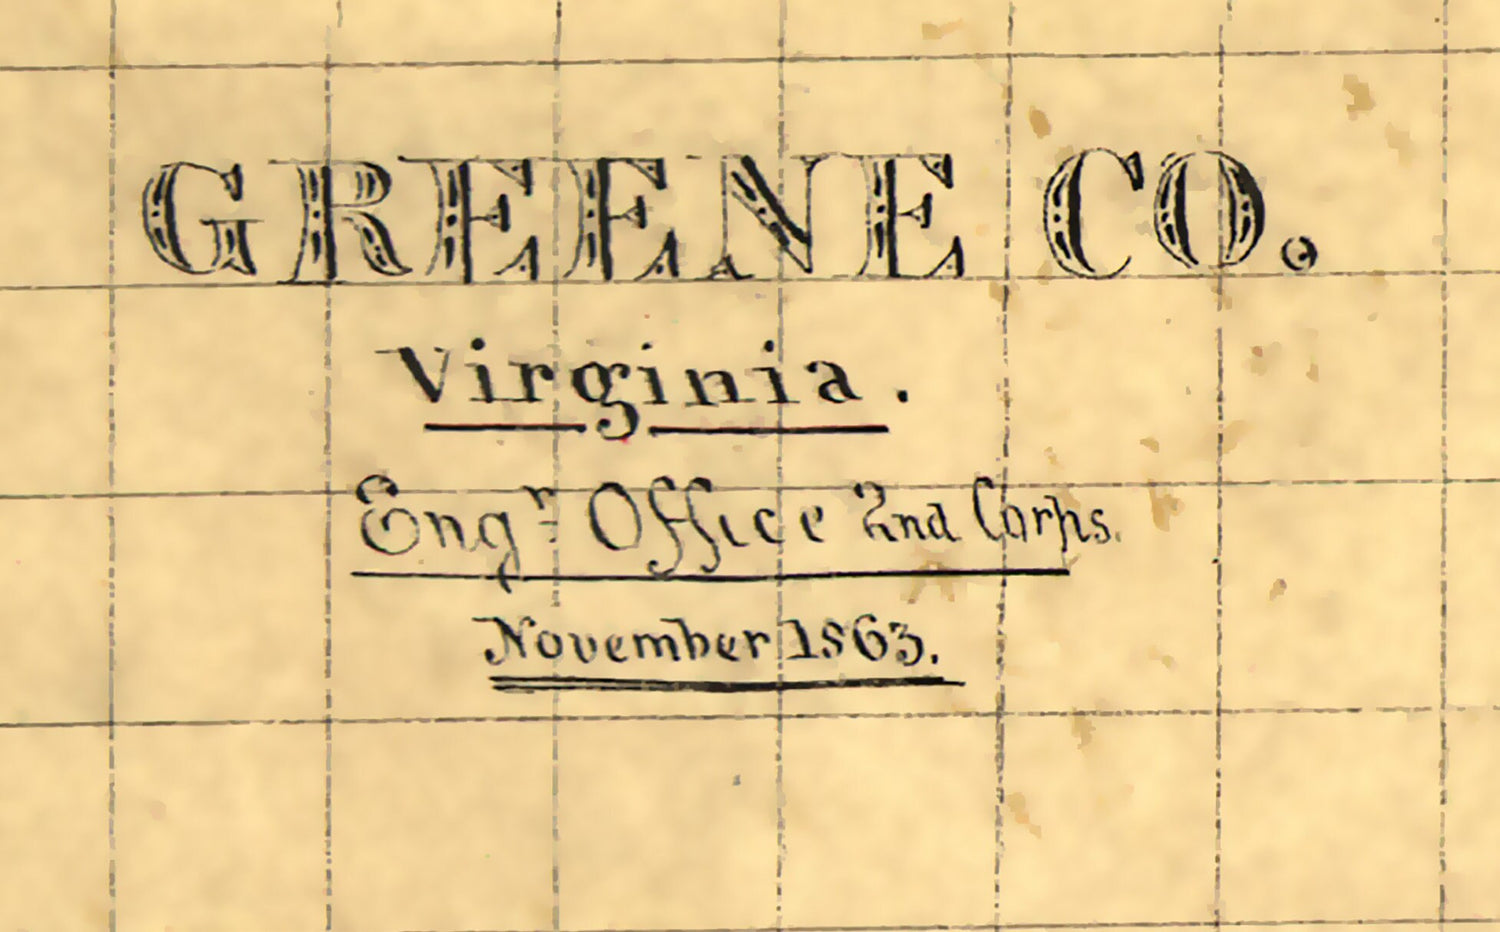 GREENE CO.
Virginia.
Engr Office 2nd Corps.
November 1863.